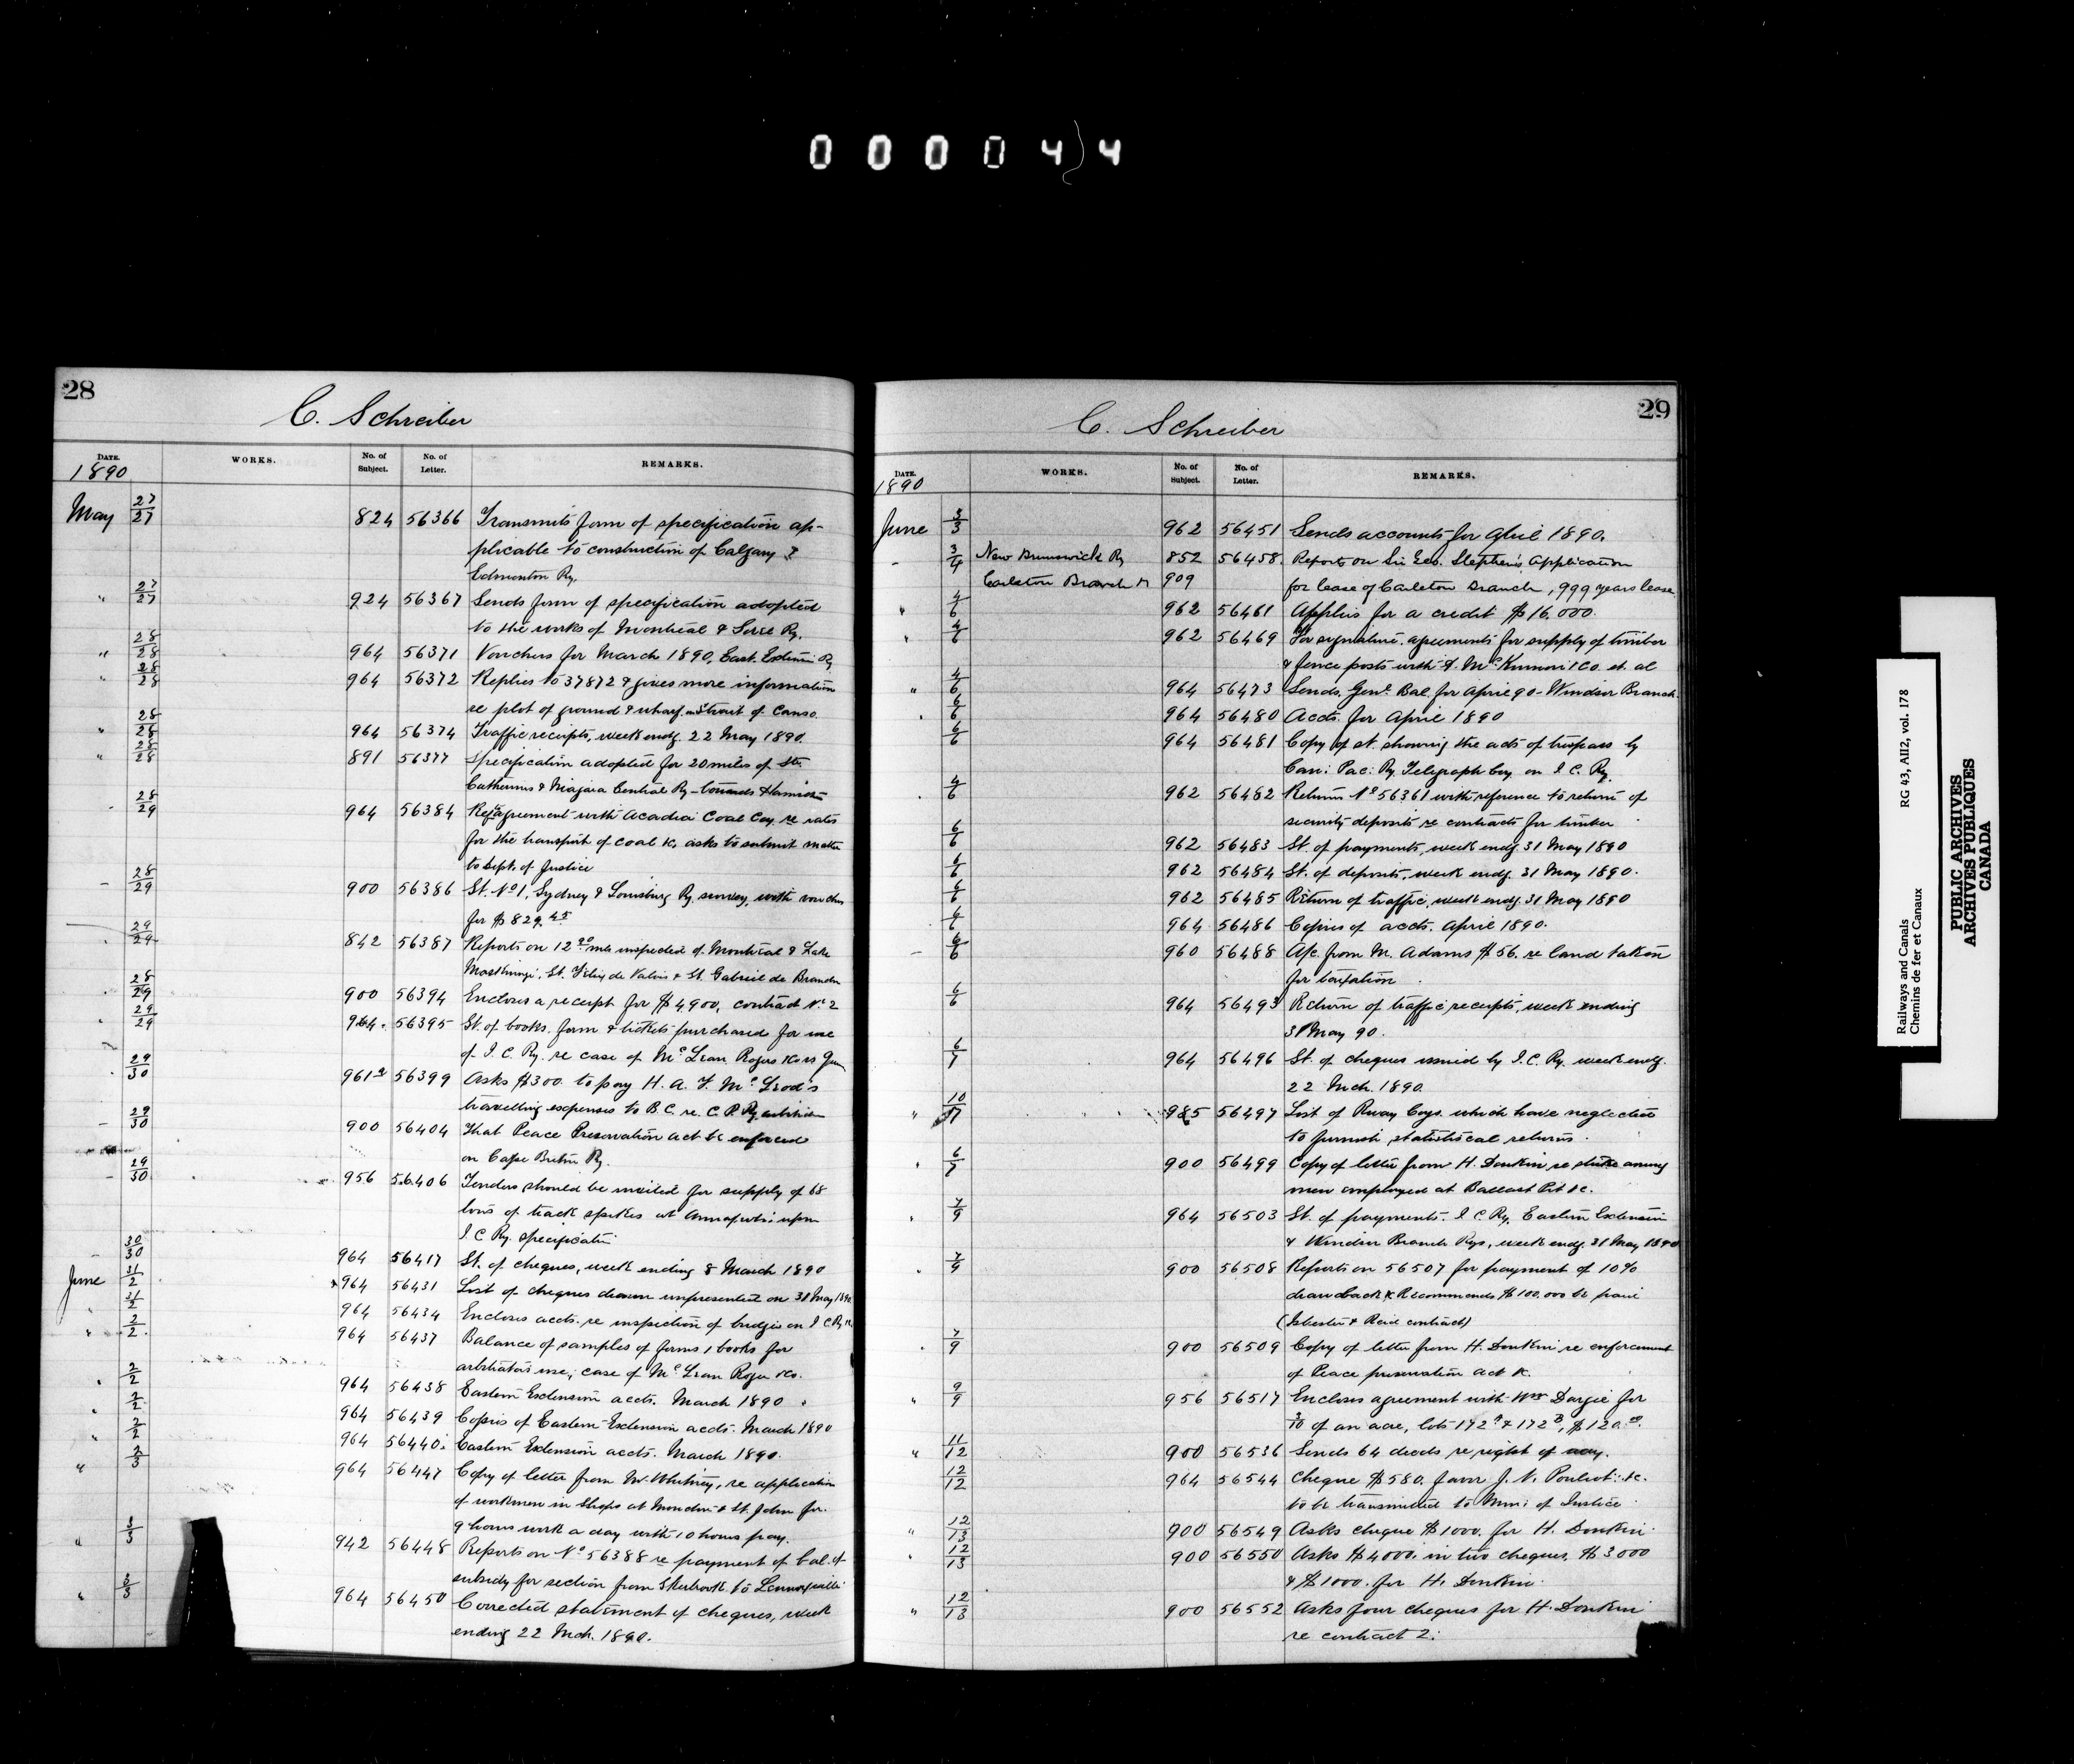 000044
28
C. Schreiber
DATE. WORKS. No. of Subject. No. of Letter. REMARKS.
1890
May 27/27 824 56366 Transmits form of specification ap-
plicable to construction of Calgary &
Edmonton Ry.
" 27/27 924 56367 Sends form of specification adopted
to the works of Montreal & Sorel Ry.
" 28/28 964 56371 Vouchers for March 1890, East. Extension Ry
" 28/28 964 56372 Replies to 37872 & gives more information
re plot of ground & wharf. Strait of Canso.
" 28/28 964 56374 Traffic receipts, week endg. 22 May 1890.
" 28/28 891 56377 Specification adopted for 20 miles of St.
Catherines & Niagara Central Ry - towards Hamilton
28/29 964 56384 Ref agreement with Acadia Coal Coy. re rates
for the transport of coal &c, asks to submit matter
to Dept. of Justice
28/29 900 56386 St. No 1, Sydney & Louisburg Ry survey, with vouchers
for $829.45
29/29 842 56387 Reports on 12 mls inspected of Montreal & Lake
St. Felix de Valois & St. Gabriel de Brandon
28/29 900 56394 Encloses a receipt for $4,900, contract No 2
29/29 964 56395 St. of books, form & tickets purchased for use
of I. C. Ry. re case of McLean Roger &Co vs
29/30 961 56399 Asks $300. to pay H. A. F. McLeod's
travelling expenses to B.C. re. C. P. Ry arbitration
29/30 900 56404 That Peace Preservation act be enforced
on Cape Breton Ry.
29/30 956 56406 Tenders should be invited for supply of 68
tons of track spikes at Annapolis upon
I. C Ry. specification
30/30 964 56417 St. of cheques, week ending 8 March 1890
June 31/2 964 56431 List of cheques drawn unpresented on 31 May 1890
" 31/2 964 56434 Encloses accts. re inspection of bridges on I C Ry
" 2/2 964 56437 Balance of samples of forms, books for
arbitrators use, case of McLean Roger &Co.
" 2/2 964 56438 Eastern Extension accts. March 1890
" 2/2 964 56439 Copies of Eastern Extension accts. March 1890
" 2/2 964 56440 Eastern Extension accts. March 1890.
" 2/3 964 56447 Copy of letter from Mr. Whitney, re application
of workmen in shops at Moncton & St. John for
9 hours work a day with 10 hours pay.
" 3/3 942 56448 Reports on No 56388 re payment of bal. of
subsidy for section from Sherbrook to Lennoxville
" 3/3 964 56450 Corrected statement of cheques, week
ending 22 Mch. 1890.
29
C. Schreiber
DATE. WORKS. No. of Subject. No. of Letter. REMARKS.
1890
June 3/3 962 56451 Sends accounts for April 1890.
3/4 New Brunswick Ry 852 56458 Reports on Sir Geo. Stephen's application
Carleton Branch 909 for lease of Carleton Branch, 999 years lease
" 4/6 962 56461 Applies for a credit $16,000.
" 4/6 962 56469 For signature, agreements for supply of timber
& fence posts with &Co. et al
" 4/6 964 56473 Sends. Genl. Bal. for April 90 - Windsor Branch
6/6 964 56480 Accts. for April 1890
6/6 964 56481 Copy of st. showing the acts of trespass by
Can: Pac: Ry. Telegraph Coy on I C. Ry.
4/6 962 56482 Returns No 56361 with reference to return of
security deposits re contracts for timber
6/6 962 56483 St. of payments, week endg. 31 May 1890
6/6 962 56484 St. of deposits, week endg. 31 May 1890.
6/6 962 56485 Return of traffic, week endg. 31 May 1890
6/6 964 56486 Copies of accts. April 1890.
6/6 960 56488 A/c. from M. Adams $56. re land taken
for
6/6 964 56493 Return of traffic receipts, week ending
31 May 90.
6/7 964 56496 St. of cheques issued by I. C. Ry. week endg.
22 Mch. 1890.
" 10/17 985 56497 List of Rway Coys. which have neglected
to furnish statistical returns.
6/7 900 56499 Copy of letter from H. Donkin re strike among
men employed at Ballast Pit &c.
7/9 964 56503 St. of payments. I. C Ry, Eastern Extension
& Windsor Branch Rys, week endg. 31 May 1890
7/9 900 56508 Reports on 56507 for payment of 10%
drawback & Recommends $100.000 be paid
(Isbester & Reid contract)
7/9 900 56509 Copy of letter from H. Donkin re enforcement
of Peace preservation act &c.
" 9/9 956 56517 Encloses agreement with Wm Dargie for
3/10 of an acre, lots 172A & 172B, $120.00.
" 11/12 900 56536 Sends 64 deeds re right of way.
12/12 964 56544 Cheque $580. favor J. N. Pouliot: &c.
to be transmitted to Min: of Justice
" 12/13 900 56549 Asks cheque $1000. for H. Donkin.
12/13 900 56550 Asks $4000. in two cheques, $3000
& $1000. for H. Donkin.
" 12/13 900 56552 Asks four cheques for H. Donkin
re contract 2.
Railways and Canals RG 43, AIII2, vol. 178
Chemins de fer et Canaux
PUBLIC ARCHIVES
ARCHIVES PUBLIQUES
CANADA